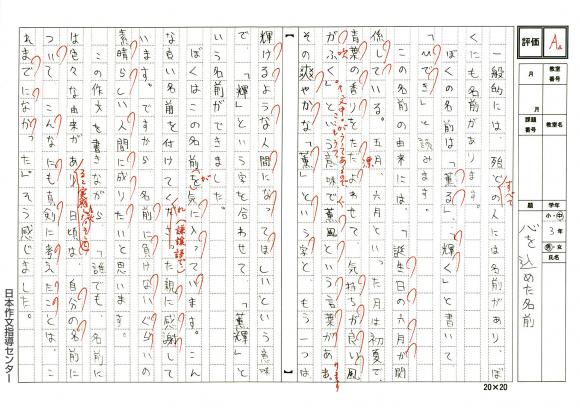 評価
A
月
教室番号
月
課題番号
教室名
題
学年
小・中
3年
男・女
氏名
心を込めた名前
一般的には、殆どの人には名前があり、ぼ
くにも名前があります。
ぼくの名前は「薫る」、「輝く」と書いて
と読みます。
この名前の由来には、誕生日の六月が関
係している。五月、六月といった月は初夏で、
青葉の香りをただよわせて、気持ちが良い風
がふく」という意味で薫風という言葉があ
その爽やかな「薫」という字と、もう一つは
輝けるような人間になってほしいという意味
で、「輝」という字を合わせて、「薫輝」と
いう名前ができました。
ぼくはこの名前を気に入っています。こん
な良い名前を付けてくださった親に感謝して
います。ですから、名前に負けないぐらいの
素晴らしい人間に成りたいと思います。
この作文を書きながら、「誰でも、名前に
は色々な由来があり、日頃は、自分の名前に
ついて、こんなにも真剣に考えたことは、こ
れまでになかった」そう感じました。
20×20
日本作文指導センター